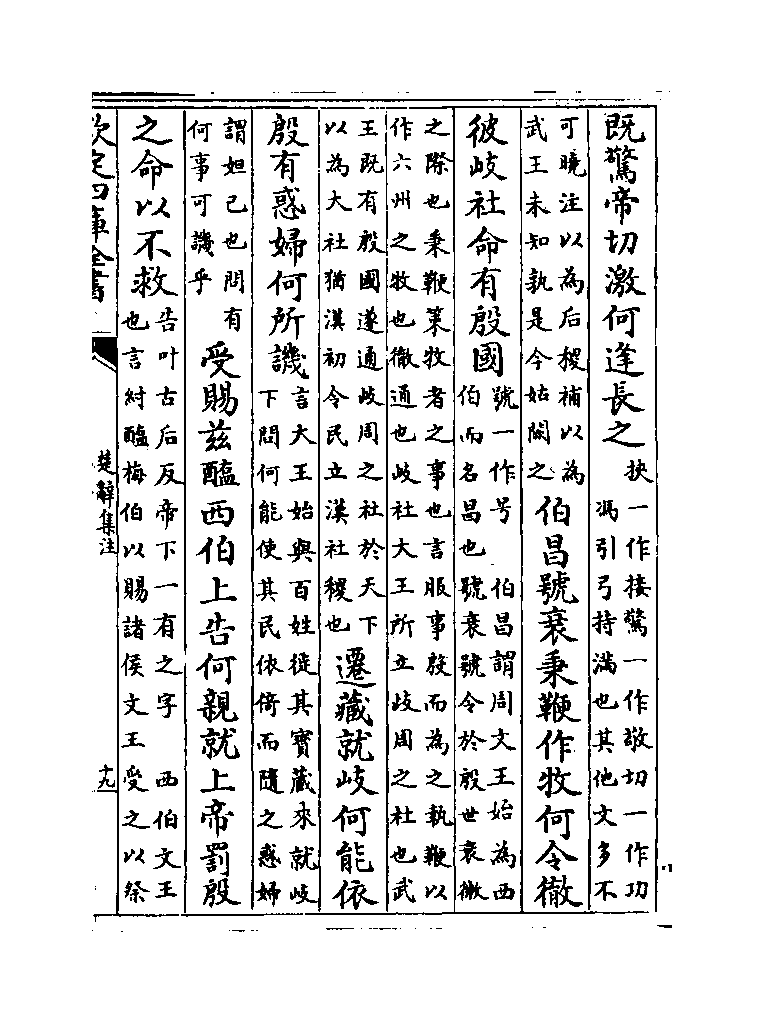 既驚帝切激何逢長之
抉一作接驚一作敬切一作功
馮引弓持滿也其他文多不
可曉注以為后稷補以為
武王未知孰是今姑闕之
伯昌號衰秉鞭作牧何令徹
彼岐社命有殷國
號一作号 伯昌謂周文王始為西
伯而名昌也 號衰號令於殷世衰微
之際也秉鞭策牧者之事也言服事殷而為之執鞭以
作六州之牧也徹通也岐社大王所立岐周之社也武
王既有殷國遂通岐周之社於天下
以為大社猶漢初令民立漢社稷也
遷藏就岐何能依
殷有惑婦何所譏
言大王始與百姓徙其寶藏來就岐
下問何能使其民依倚而隨之惑婦
謂妲己也問有
何事可譏乎
受賜兹醢西伯上告何親就上帝罰殷
之命以不救
告叶古后反帝下一有之字 西伯文王
也言紂醢梅伯以賜諸侯文王受之以祭
欽定四庫全書
楚辭集注
十九